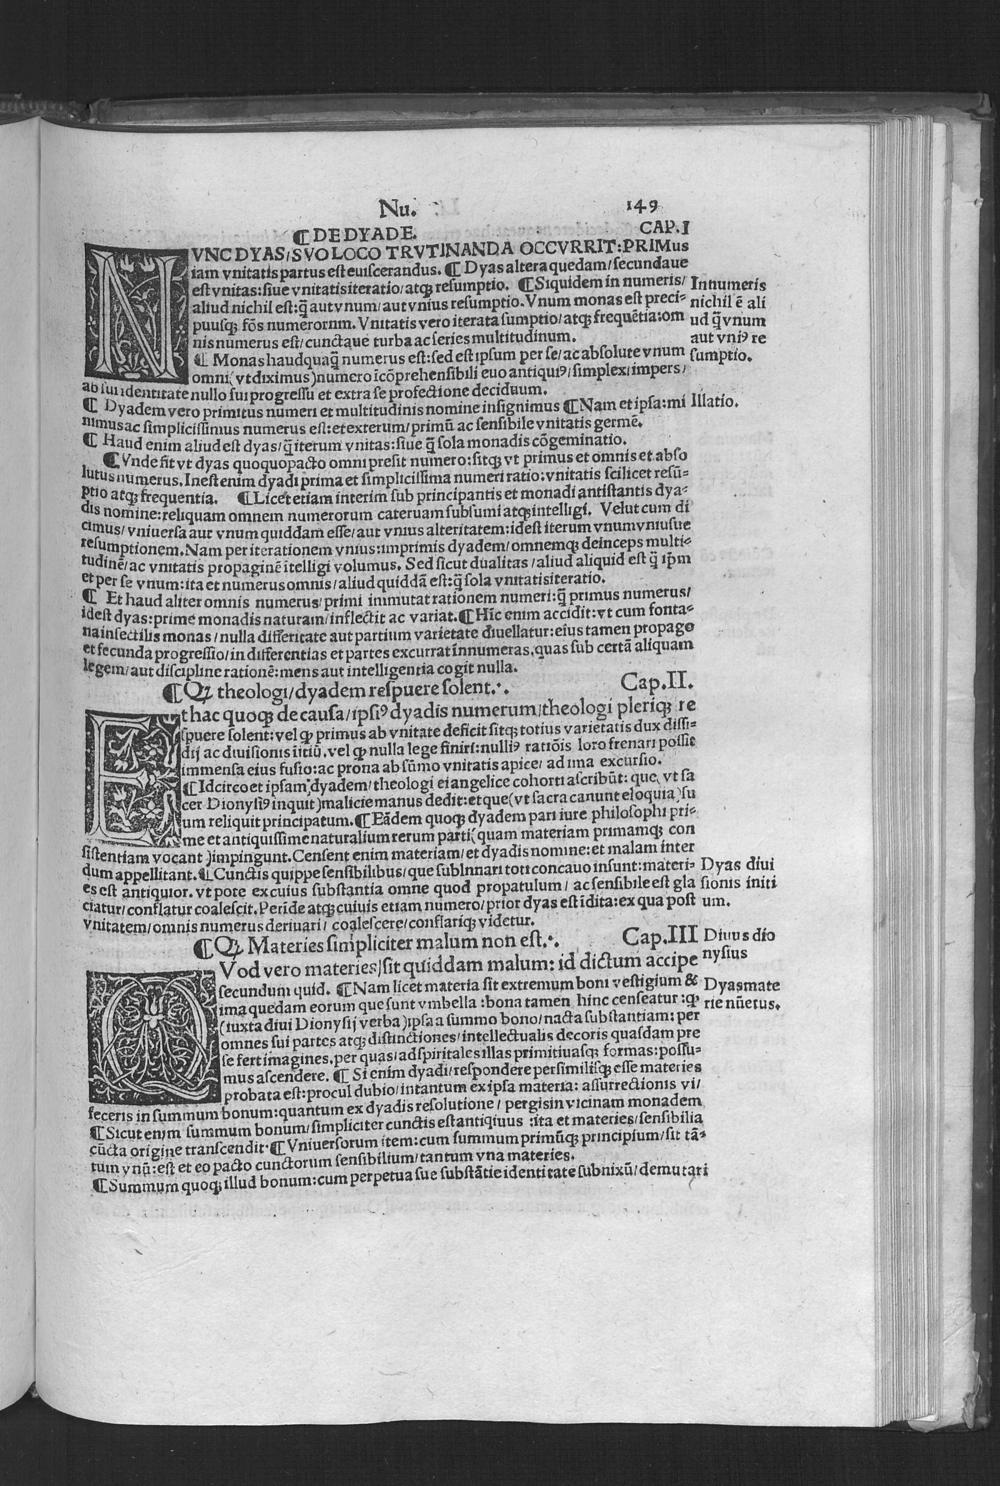 Nu. 149
¶ DE DYADE. CAP.I
NVNC DYAS/SVO LOCO TRVTINANDA OCCVRRIT:PRIMus
iam vnitatis partus est euiscerandus. ¶ Dyas altera quedam/secundaue
est vnitas:siue vnitatis iteratio/atqȝ resumptio. ¶ Siquidem in numeris/
aliud nichil est:q̃ aut vnum/aut vnius resumptio. Vnum monas est preci-
puusqȝ fõs numerornm. Vnitatis vero iterata sumptio/atqȝ frequẽtia:om
nis numerus est/cunctaue turba ac series multitudinum.
¶ Monas haudquaq̃ numerus est:sed est ipsum per se/ac absolute vnum
omni(vt diximus)numero ĩcõprehensibili euo antiquiꝰ/simplex/impers/
ab sui identitate nullo sui progressu et extra se profectione deciduum.
¶ Dyadem vero primitus numeri et multitudinis nomine insignimus ¶ Nam et ipsa:mi
nimus ac simplicissimus numerus est:et exterum/primũ ac sensibile vnitatis germẽ.
¶ Haud enim aliud est dyas/q̃ iterum vnitas:siue q̃ sola monadis cõgeminatio.
¶ Vnde fit vt dyas quoquo pacto omni presit numero:sitqȝ vt primus et omnis et abso
lutus numerus. Inest enim dyadi prima et simplicissima numeri ratio:vnitatis scilicet resũ-
ptio atqȝ frequentia. ¶ Licet etiam interim sub principantis et monadi antistantis dya-
dis nomine:reliquam omnem numerorum cateruam subsumi atqȝ intelligi. Velut cum di
cimus/vniuersa aut vnum quiddam esse/aut vnius alteritatem:idest iterum vnum vniusue
resumptionem. Nam per iterationem vnius:imprimis dyadem/omnemqȝ deinceps multi-
tudinẽ/ac vnitatis propaginẽ ĩtelligi volumus. Sed sicut dualitas/aliud aliquid est q̃ ip̃m
et per se vnum:ita et numerus omnis/aliud quiddã est:q̃ sola vnitatis iteratio.
¶ Et haud aliter omnis numerus/primi immutat rationem numeri:q̃ primus numerus/
idest dyas:prime monadis naturam/inflectit ac variat. ¶ Hĩc enim accidit:vt cum fonta-
na insectilis monas/nulla differitate aut partium varietate diuellatur:eius tamen propago
et fecunda progressio/in differentias et partes excurrat innumeras,quas sub certã aliquam
legem/aut discipline rationẽ:mens aut intelligentia cogit nulla.
In numeris
nichil ẽ ali
ud q̃ vnum
aut vniꝰ re
sumptio.
Illatio.
¶ Qꝫ theologi/dyadem respuere solent. Cap.II.
Et hac quoqȝ de causa/ipsiꝰ dyadis numerum/theologi pleriqȝ re
spuere solent:vel qꝫ primus ab vnitate deficit sitqȝ totius varietatis dux dissi-
dij ac diuisionis ĩitiũ,vel qꝫ nulla lege finiri:nulliꝰ ratiõis loro frenari possit
immensa eius fusio:ac prona ab sũmo vnitatis apice/ad ima excursio.
¶ Idcirco et ipsam dyadem/theologi ei angelice cohorti ascribũt: que(vt sa
cer Dionysiꝰ inquit)malicie manus dedit:et que(vt sacra canunt eloquia)su
um reliquit principatum. ¶ Eãdem quoqȝ dyadem pari iure philosophi pri-
me et antiquissime naturalium rerum parti(quam materiam primamqȝ con
sistentiam vocant)impingunt. Censent enim materiam/et dyadis nomine:et malam inter
dum appellitant. ¶ Cunctis quippe sensibilibus/que sublnnari toti concauo insunt:materi-
es est antiquior. vt pote ex cuius substantia omne quod propatulum/ac sensibile est gla
ciatur/conflatur coalescit. Perĩde atqȝ cuiuis etiam numero/prior dyas est ĩdita:ex qua post
vnitatem/omnis numerus deriuari/coalescere/conflariqȝ videtur.
Dyas diui
sionis initi
um.
¶ Qꝫ Materies simpliciter malum non est. Cap.III
QVod vero materies)sit quiddam malum: id dictum accipe
secundum quid. ¶ Nam licet materia sit extremum boni vestigium &
ima quedam eorum que sunt vmbella:bona tamen hinc censeatur:qꝫ
(iuxta diui Dionysij verba)ipsa a summo bono/nacta substantiam:per
omnes sui partes atqȝ distinctiones/intellectualis decoris quasdam pre
se fert imagines,per quas/ad spiritales illas primitiuasqȝ formas:possu-
mus ascendere. ¶ Si enim dyadi/respondere persimilisqȝ esse materies
probata est:procul dubio/in tantum ex ipsa materia: assurrectionis vi/
feceris in summum bonum:quantum ex dyadis resolutione/pergis in vicinam monadem
¶ Sicut enim summum bonum/simpliciter cunctis est antiqiuus:ita et materies/sensibilia
cũcta origine transcendit. ¶ Vniuersorum item:cum summum primũqȝ principium/sit tã-
tum vnũ:est et eo pacto cunctorum sensibilium/tantum vna materies.
¶ Summum quoqȝ illud bonum:cum perpetua sue substãtie identitate subnixũ/demutari
Diuus dio
nysius
Dyas mate
rie nũerus.